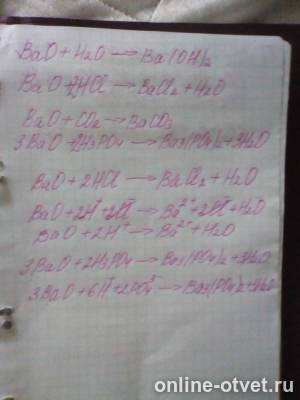 BaO + H2O → Ba(OH)2
BaO + 2HCl → BaCl2 + H2O
BaO + CO2 → BaCO3
3BaO + 2H3PO4 → Ba3(PO4)2 + 3H2O
BaO + 2HCl → BaCl2 + H2O
BaO + 2H⁺ + 2Cl⁻ → Ba²⁺ + 2Cl⁻ + H2O
BaO + 2H⁺ → Ba²⁺ + H2O
3BaO + 2H3PO4 → Ba3(PO4)2 + 3H2O
3BaO + 6H⁺ + 2PO4³⁻ → Ba3(PO4)2 + 3H2O
online-otvet.ru